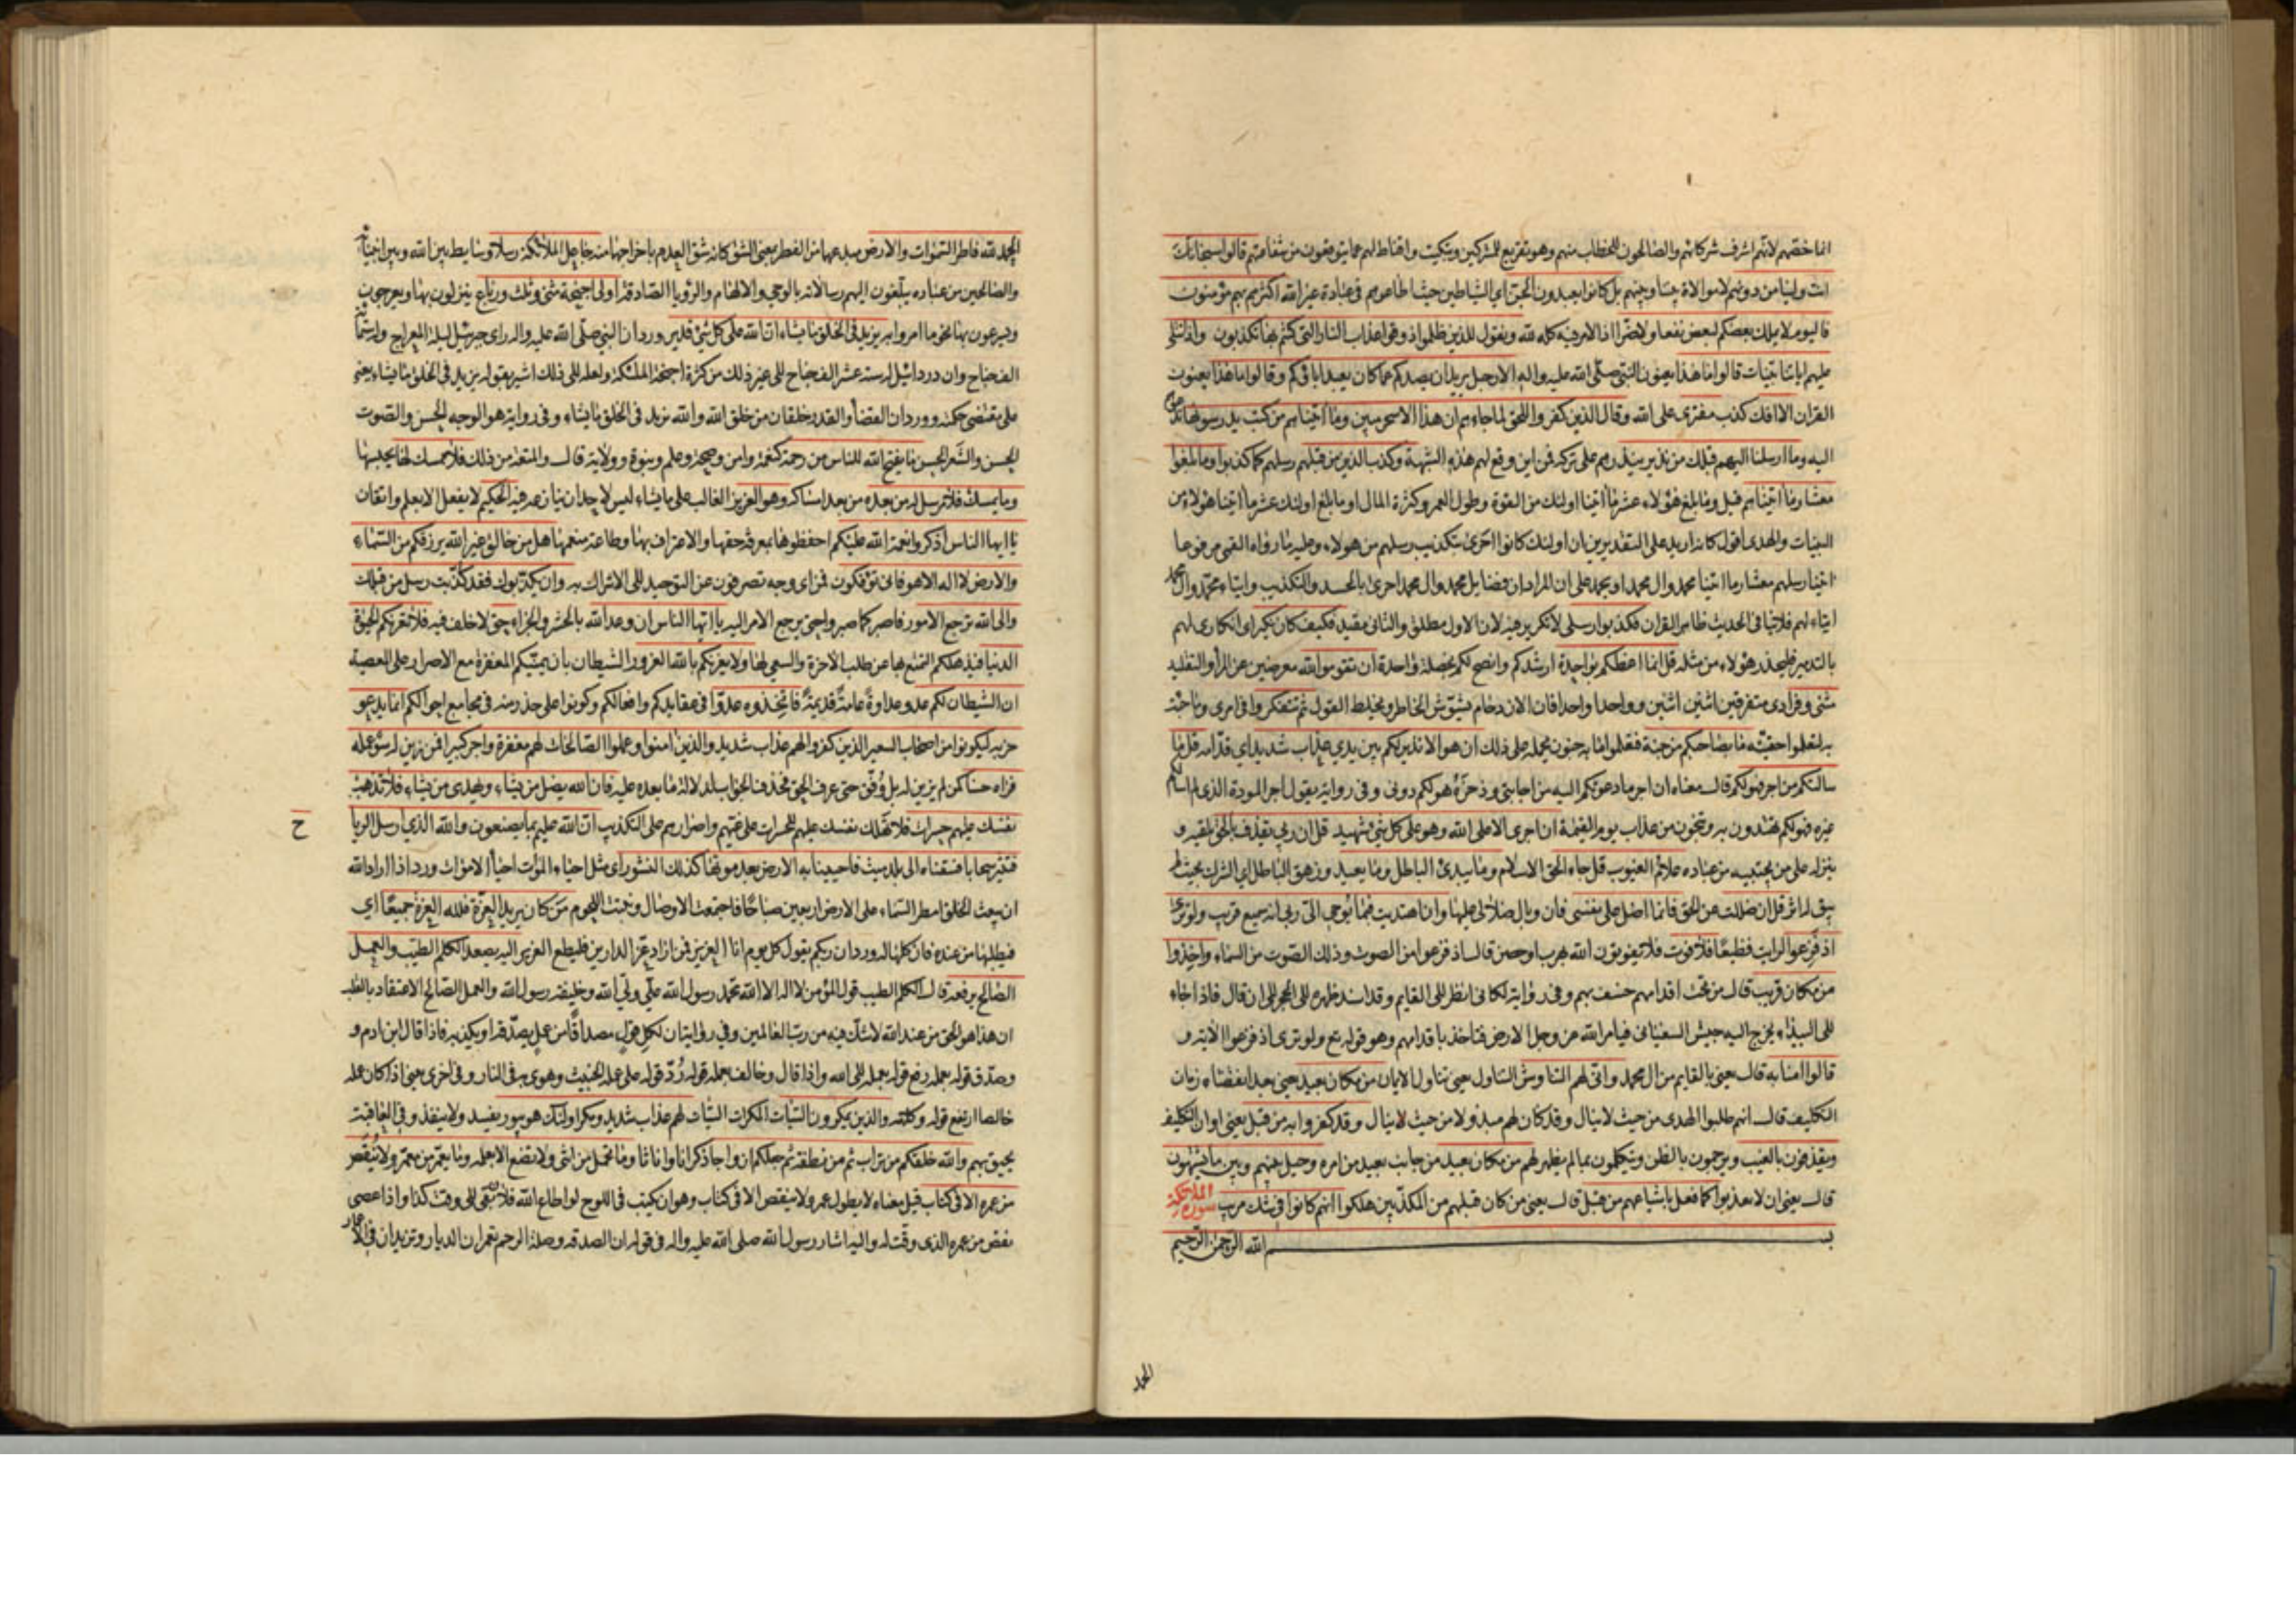 انما خصّهم لانّهم اشرف شركائهم والصالحون للخطاب منهم وهو تقريع للمشركين وتبكيت واقناط لهم عما يتوقعون من شفاعتهم قالوا سبحانك
انت ولينا من دونهم لا موالاة بيننا وبينهم بل كانوا يعبدون الجن اي الشياطين حيث اطاعوهم في عبادة غير الله اكثرهم بهم مؤمنون
فاليوم لا يملك بعضكم لبعض نفعا ولا ضرّا اذ الامر فيه كله لله ونقول للذين ظلموا ذوقوا عذاب النار التي كنتم بها تكذبون واذا تتلى
عليهم اياتنا بيّنات قالوا ما هذا يعنون النبي صلّى الله عليه واله الا رجل يريد ان يصدكم عما كان يعبد اباؤكم وقالوا ما هذا يعنون
القران الا افك كذب مفترى على الله وقال الذين كفروا للحق لما جاءهم ان هذا الا سحر مبين وما اتيناهم من كتب يدرسونها
اليه وما ارسلنا اليهم قبلك من نذير ينذرهم على تركه فمن اين وقع لهم هذه الشبهة وكذب الذين من قبلهم رسلهم كما كذبوا وما بلغوا
معشار ما اتيناهم قيل وما بلغ هؤلاء عشر ما اتينا اولئك من القوة وطول العمر وكثرة المال او ما بلغ اولئك عشر ما اتينا هؤلاء من
البينات والهدى اقول كانه اريد على التقديرين ان اولئك كانوا احرى بتكذيب رسلهم من هؤلاء وعليه ما رواه القمي مرفوعا
اتينا رسلهم معشار ما اتينا محمدا وال محمد او يحمل على ان المراد ان فضايل محمد وال محمد احرى بالحسد والتكذيب وايتاء محمّد وال محمد
ايتاء لهم فلا ينافي الحديث ظاهر القران فكذبوا رسلى لا تكرير فيه لان الاول مطلق والثاني مقيد فكيف كان نكير اى انكارى لهم
بالتدمير فليحذر هؤلاء من مثله قل انما اعظكم بواحدة ارشدكم وانصح لكم بخصلة واحدة ان تقوموا لله معرضين عن المراء والتقليد
مثنى وفرادى متفرقين اثنين اثنين وواحدا واحدا فان الازدحام يشوّش الخاطر ويخلط القول ثم تتفكروا في امرى وما جئت
به لتعلموا حقيّته ما بصاحبكم من جنة فتعلموا ما به جنون يحمله على ذلك ان هو الا نذير لكم بين يدي عذاب شديد اي قدامه قل ما
سالتكم من اجر فهو لكم قال معناه ان اجر ما دعوتكم اليه من اجابتي وذخره هو لكم دوني وفي رواية يقول اجر المودة الذي لم اسالكم
غيره فهو لكم تهتدون به وتنجون من عذاب يوم القيمة ان اجرى الا على الله وهو على كل شيء شهيد قل ان ربي يقذف بالحق يلقيه و
ينزله على من يجتبيه من عباده علام الغيوب قل جاء الحق الاسلام وما يبدئ الباطل وما يعيد وزهق الباطل اي الشرك بحيث لم
يبق له اثر قل ان ضللت عن الحق فانما اضل على نفسى فان وبال ضلالى عليها وان اهتديت فبما يوحى الىّ ربي انه سميع قريب ولو ترى
اذ فزعوا لرايت فظيعا فلا فوت فلا يفوتون الله بهرب او حصن قال اذ فزعوا من الصوت وذلك الصوت من السماء واخذوا
من مكان قريب قال من تحت اقدامهم خسف بهم وفي رواية لكاني انظر الى القايم وقد اسند ظهره الى الحجر الى ان قال فاذا جاء
الى البيداء يخرج اليه جيش السفياني فيامر الله عز وجل الارض فتاخذ باقدامهم وهو قوله تع ولو ترى اذ فزعوا الاية و
قالوا امنا به قال يعني بالقايم من ال محمد وانّى لهم التناوش التناول يعني تناول الايمان من مكان بعيد يعني بعد انقضاء زمان
التكليف قال انهم طلبوا الهدى من حيث لا ينال وقد كان لهم مبذولا من حيث لا ينال وقد كفروا به من قبل يعني اوان التكليف
ويقذفون بالغيب ويرجمون بالظن ويتكلمون بما لم يظهر لهم من مكان بعيد من جانب بعيد من امره وحيل بينهم وبين ما يشتهون
قال يعني ان لا يعذبوا كما فعل باشياعهم من قبل قال يعني من كان قبلهم من المكذّبين هلكوا انهم كانوا في شك مريب سورة الملائكة
بسم الله الرحمن الرّحيم
الحمد
الحمد لله فاطر السموات والارض مبدعهما من الفطر بمعنى الشق كانه شق العدم باخراجهما منه جاعل الملائكة رسلا وسايط بين الله وبين انبيائه
والصالحين من عباده يبلّغون اليهم رسالاته بالوحي والالهام والرؤيا الصادقة اولى اجنحة مثنى وثلث ورباع ينزلون بها ويعرجون
ويسرعون بها نحو ما امروا به يزيد في الخلق ما يشاء ان الله على كل شيء قدير ورد ان النبي صلّى الله عليه واله راى جبرئيل ليلة المعراج وله ستمائة
الف جناح وان دردائيل له ستة عشر الف جناح الى غير ذلك من كثرة اجنحة الملئكة ولعله الى ذلك اشير بقوله يزيد في الخلق ما يشاء يعني
على مقتضى حكمته وورد ان القضاء والقدر خلقان من خلق الله والله يزيد في الخلق ما يشاء وفي رواية هو الوجه الحسن والصّوت
الحسن والشّعر الحسن ما يفتح الله للناس من رحمة كنعمة وامن وصحة وعلم ونبوة وولاية قال والمتعة من ذلك فلا ممسك لها يحبسها
وما يمسك فلا مرسل له من بعده من بعد امساكه وهو العزيز الغالب على ما يشاء ليس لاحد ان ينازعه فيه الحكيم لا يفعل الا بعلم واتقان
يا ايها الناس اذكروا نعمة الله عليكم احفظوها بمعرفة حقها والاعتراف بها وطاعة منعمها هل من خالق غير الله يرزقكم من السّماء
والارض لا اله الا هو فانى تؤفكون فمن اى وجه تصرفون عن التوحيد الى الاشراك به وان يكذّبوك فقد كذّبت رسل من قبلك
والى الله ترجع الامور فاصبر كما صبروا حتى يرجع الامر اليه يا ايّها الناس ان وعد الله بالحشر والجزاء حق لا خلف فيه فلا تغرنكم الحيوة
الدنيا فيذهلكم التمتع بها عن طلب الاخرة والسعي لها ولا يغرنكم بالله الغرور الشيطان بان يمنيّكم المغفرة مع الاصرار على المعصية
ان الشيطان لكم عدو عداوةً عامةً قديمةً فاتخذوه عدوّا في عقايدكم وافعالكم وكونوا على حذر منه في مجامع احوالكم انما يدعو
حزبه ليكونوا من اصحاب السعير الذين كفروا لهم عذاب شديد والذين امنوا وعملوا الصّالحات لهم مغفرة واجر كبير افمن زين له سوء عمله
فراه حسنا كمن لم يزين له بل وُفّق حتى عرف الحق فحذف الجواب لدلالة ما بعده عليه فان الله يضل من يشاء ويهدى من يشاء فلا تذهب
نفسك عليهم حسرات فلا تهلك نفسك عليهم للحسرات على غيّهم واصرارهم على التكذيب انّ الله عليم بما يصنعون والله الذي ارسل الرياح
فتثير سحابا فسقناه الى بلد ميت فاحيينا به الارض بعد موتها كذلك النشور اى مثل احياء الموات احياء الاموات ورد اذا اراد الله
ان يبعث الخلق امطر السّماء على الارض اربعين صباحًا فاجتمعت الاوصال ونبتت اللّحوم من كان يريد العزّة فلله العزة جميعًا اي
فليطلبها من عنده فان كلها له ورد ان ربكم يقول كل يوم انا العزيز فمن اراد عزّ الدارين فليطع العزيز اليه يصعد الكلم الطيّب والعمل
الصّالح يرفعه قال الكلم الطيب قول المؤمن لا اله الا الله محمّد رسول الله علّي ولّي الله وخليفة رسول الله والعمل الصّالح الاعتقاد بالقلب
ان هذا هو الحق من عند الله لا شك فيه من ربّ العالمين وفي رواية ان لكل قول مصداقًا من عمل يصدّقه او يكذبه فاذا قال ابن ادم و
وصدّق قوله بعمله رفع قوله بعمله الى الله واذا قال وخالف بعمله قوله رُدّ قوله على عمله الخبيث وهوى به في النار وفي اخرى يعني اذا كان عمله
خالصا ارتفع قوله وكلمته والذين يمكرون السّيّئات المكرات السّيّئات لهم عذاب شديد ومكر اولئك هو يبور يفسد ولا ينفذ وفي العاقبة
يحيق بهم والله خلقكم من تراب ثم من نطفة ثم جعلكم ازواجا ذكرانا واناثا وما تحمل من انثى ولا تضع الا بعلمه وما يعمّر من معمّر ولا يُنقص
من عمره الا في كتاب قيل معناه لا يطول عمر ولا ينقص الا في كتاب وهو ان يكتب في اللوح لو اطاع الله فلان بقى الى وقت كذا واذا عصى
نقص من عمره الذى وقّت له واليه اشار رسول الله صلى الله عليه واله في قوله ان الصدقة وصلة الرحم تعمران الديار وتزيدان في الاعمار
ح